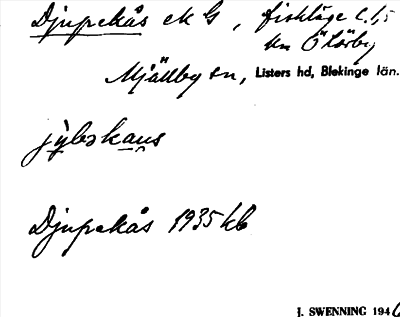 Djupekås ek G, fiskläge
Mjällby sn, Listers hd, Blekinge län.
Djupekås 1935 kb
J. SWENNING 194